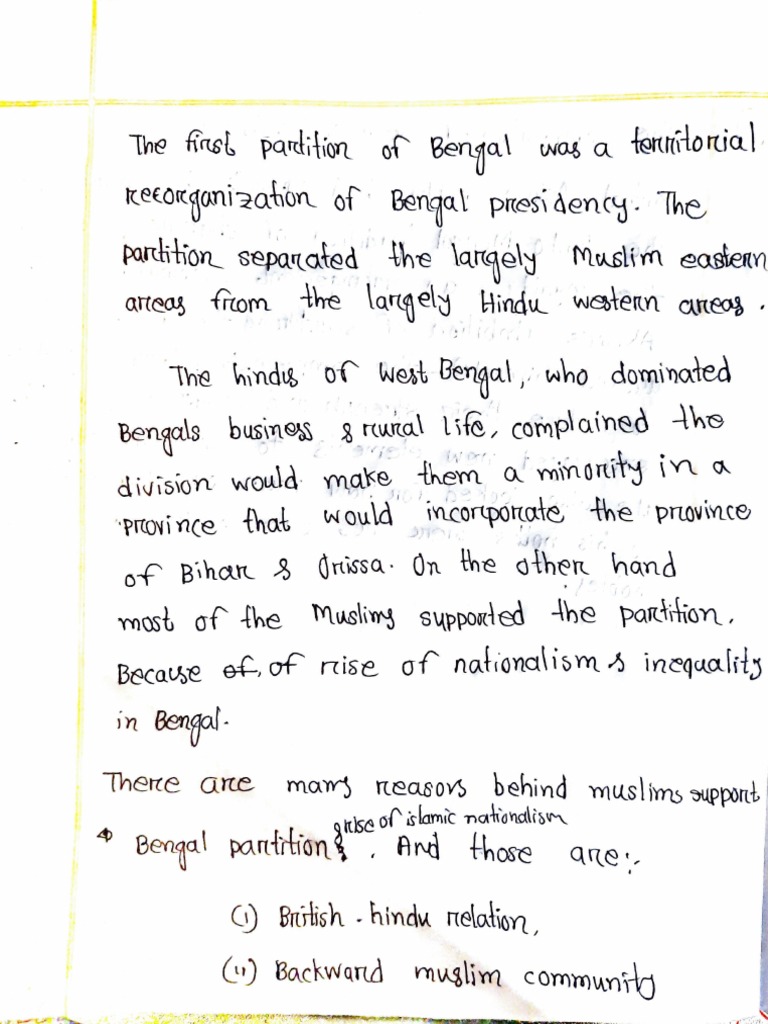 The first partition of Bengal was a territorial
reeorganization of Bengal presidency. The
partition separated the largely Muslim eastern
areas from the largely Hindu western areas.
The hindus of West Bengal, who dominated
Bengals business & rural life, complained the
division would make them a minority in a
province that would incorporate the province
of Bihar & Orissa. On the other hand
most of the Muslims supported the partition.
Because of, of rise of nationalism & inequality
in Bengal.
There are many reasons behind muslims support
& rise of islamic nationalism
Bengal partition. And those are:-
(i) British - hindu relation,
(ii) Backward muslim community